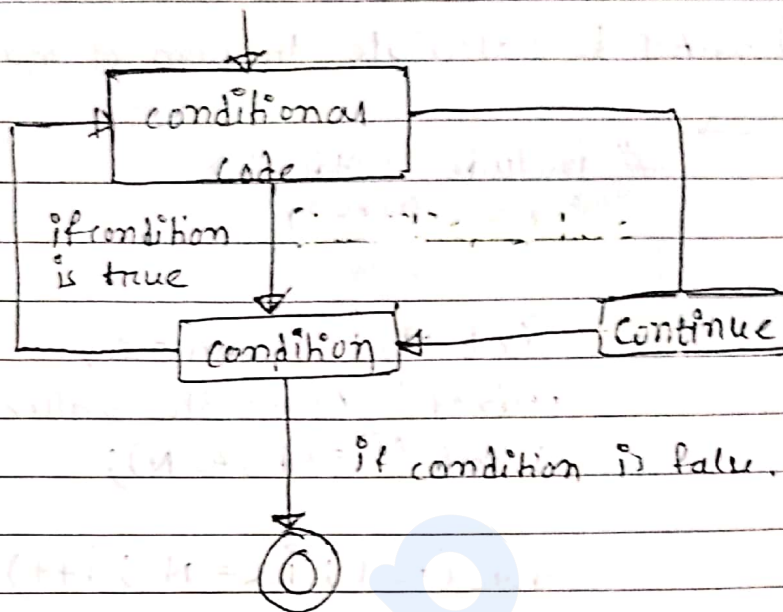 conditional
code
if condition
is true
condition
continue
if condition is false.